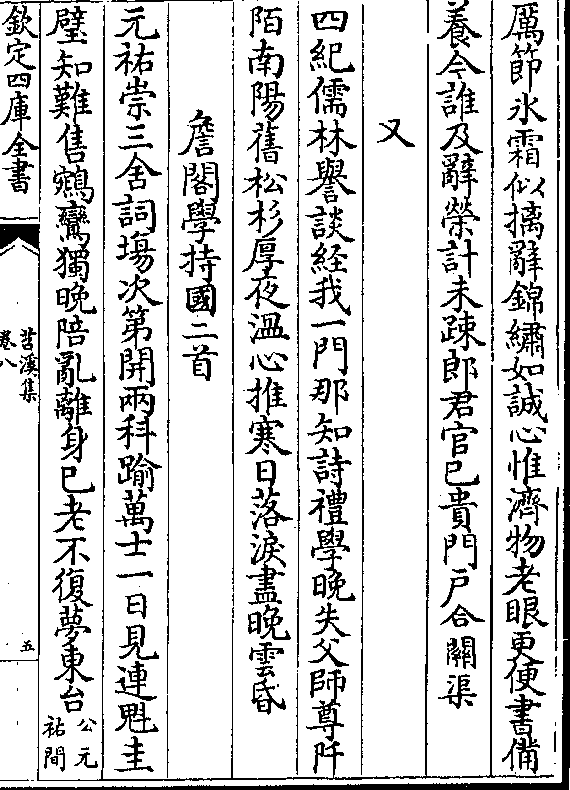 厲節氷霜似摛辭錦繡如誠心惟濟物老眼更便書備
養今誰及辭榮計未踈郎君官已貴門戸合關渠
又
四紀儒林譽談経我一門那知詩禮學晚失父師尊阡
陌南陽舊松杉厚夜温心推寒日落淚盡晚雲昏
詹閣學持國二首
元祐崇三舍詞塲次第開兩科踰萬士一日見連魁圭
璧知難售鵷鸞獨晚陪亂離身已老不復夢東台公元
祐間
欽定四庫全書
苕溪集
卷八
五